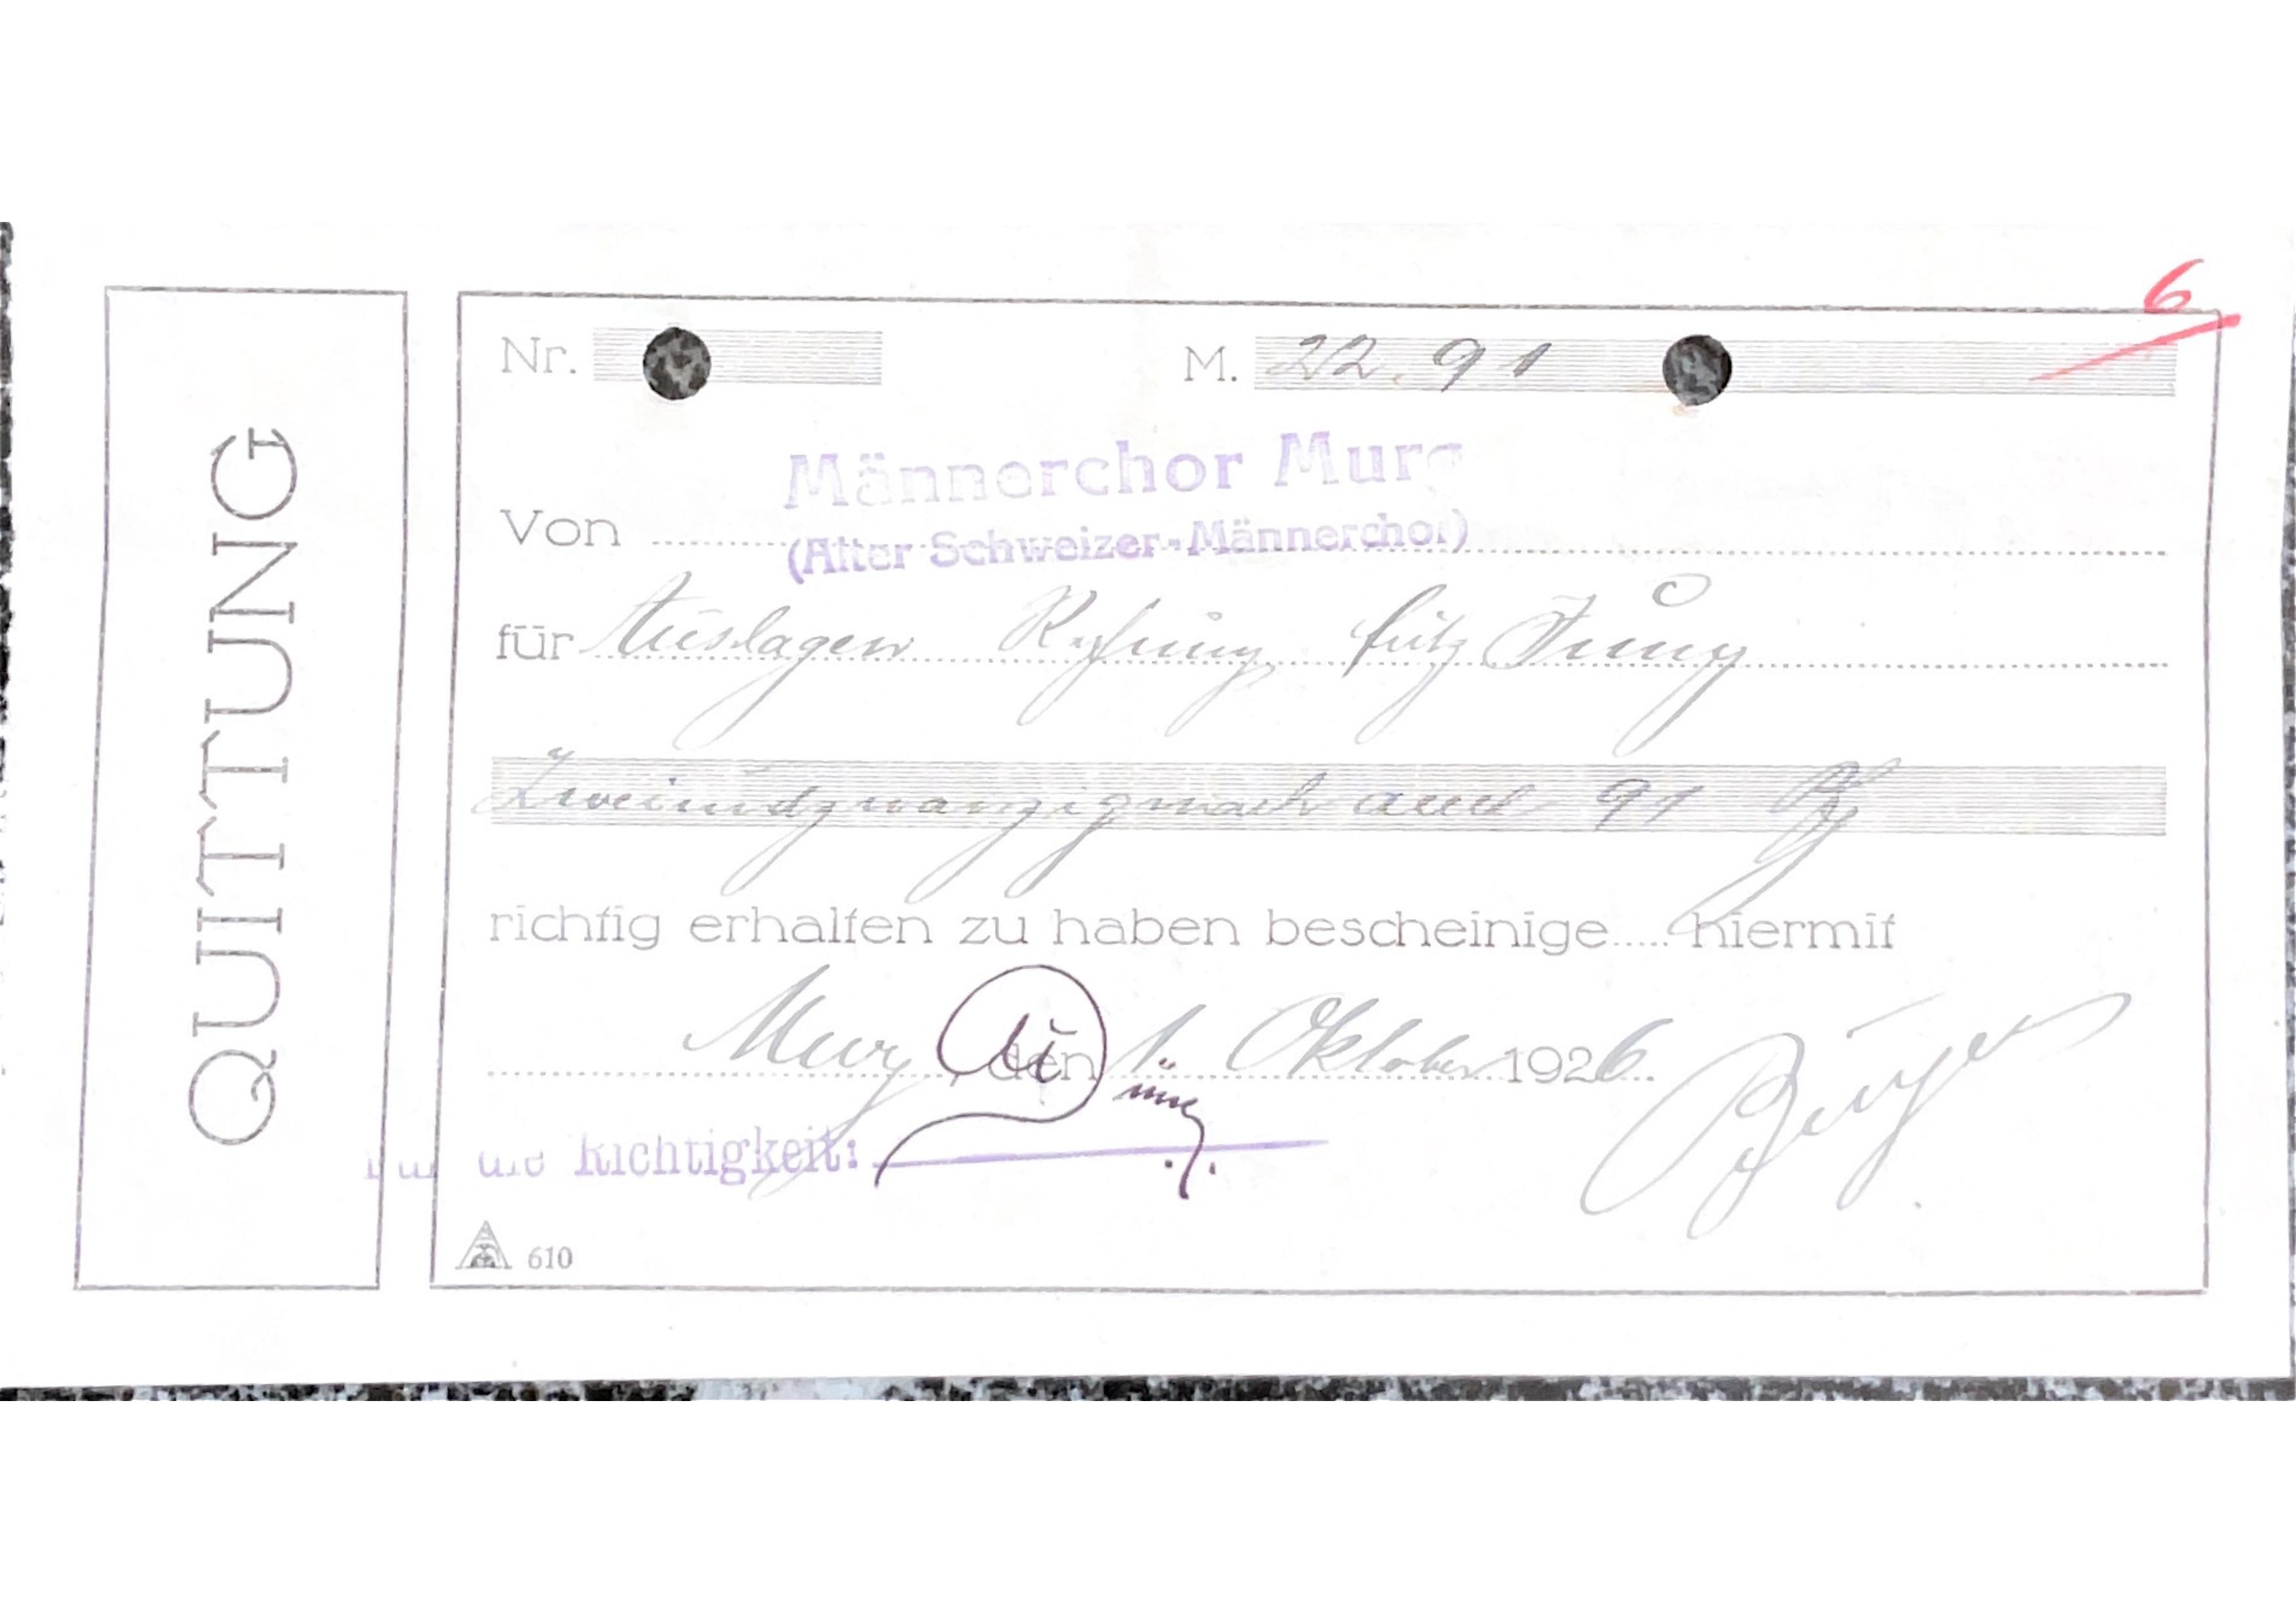 6
QUITTUNG
Nr. M. 22.91
Männerchor Murg
Von (Alter Schweizer-Männerchor)
für Auslagen Fritz Jung
Zweiundzwanzigmark und 91 Pfg
richtig erhalten zu haben bescheinige hiermit
Murg, den 1. Oktober 1926.
Für die Richtigkeit:
610